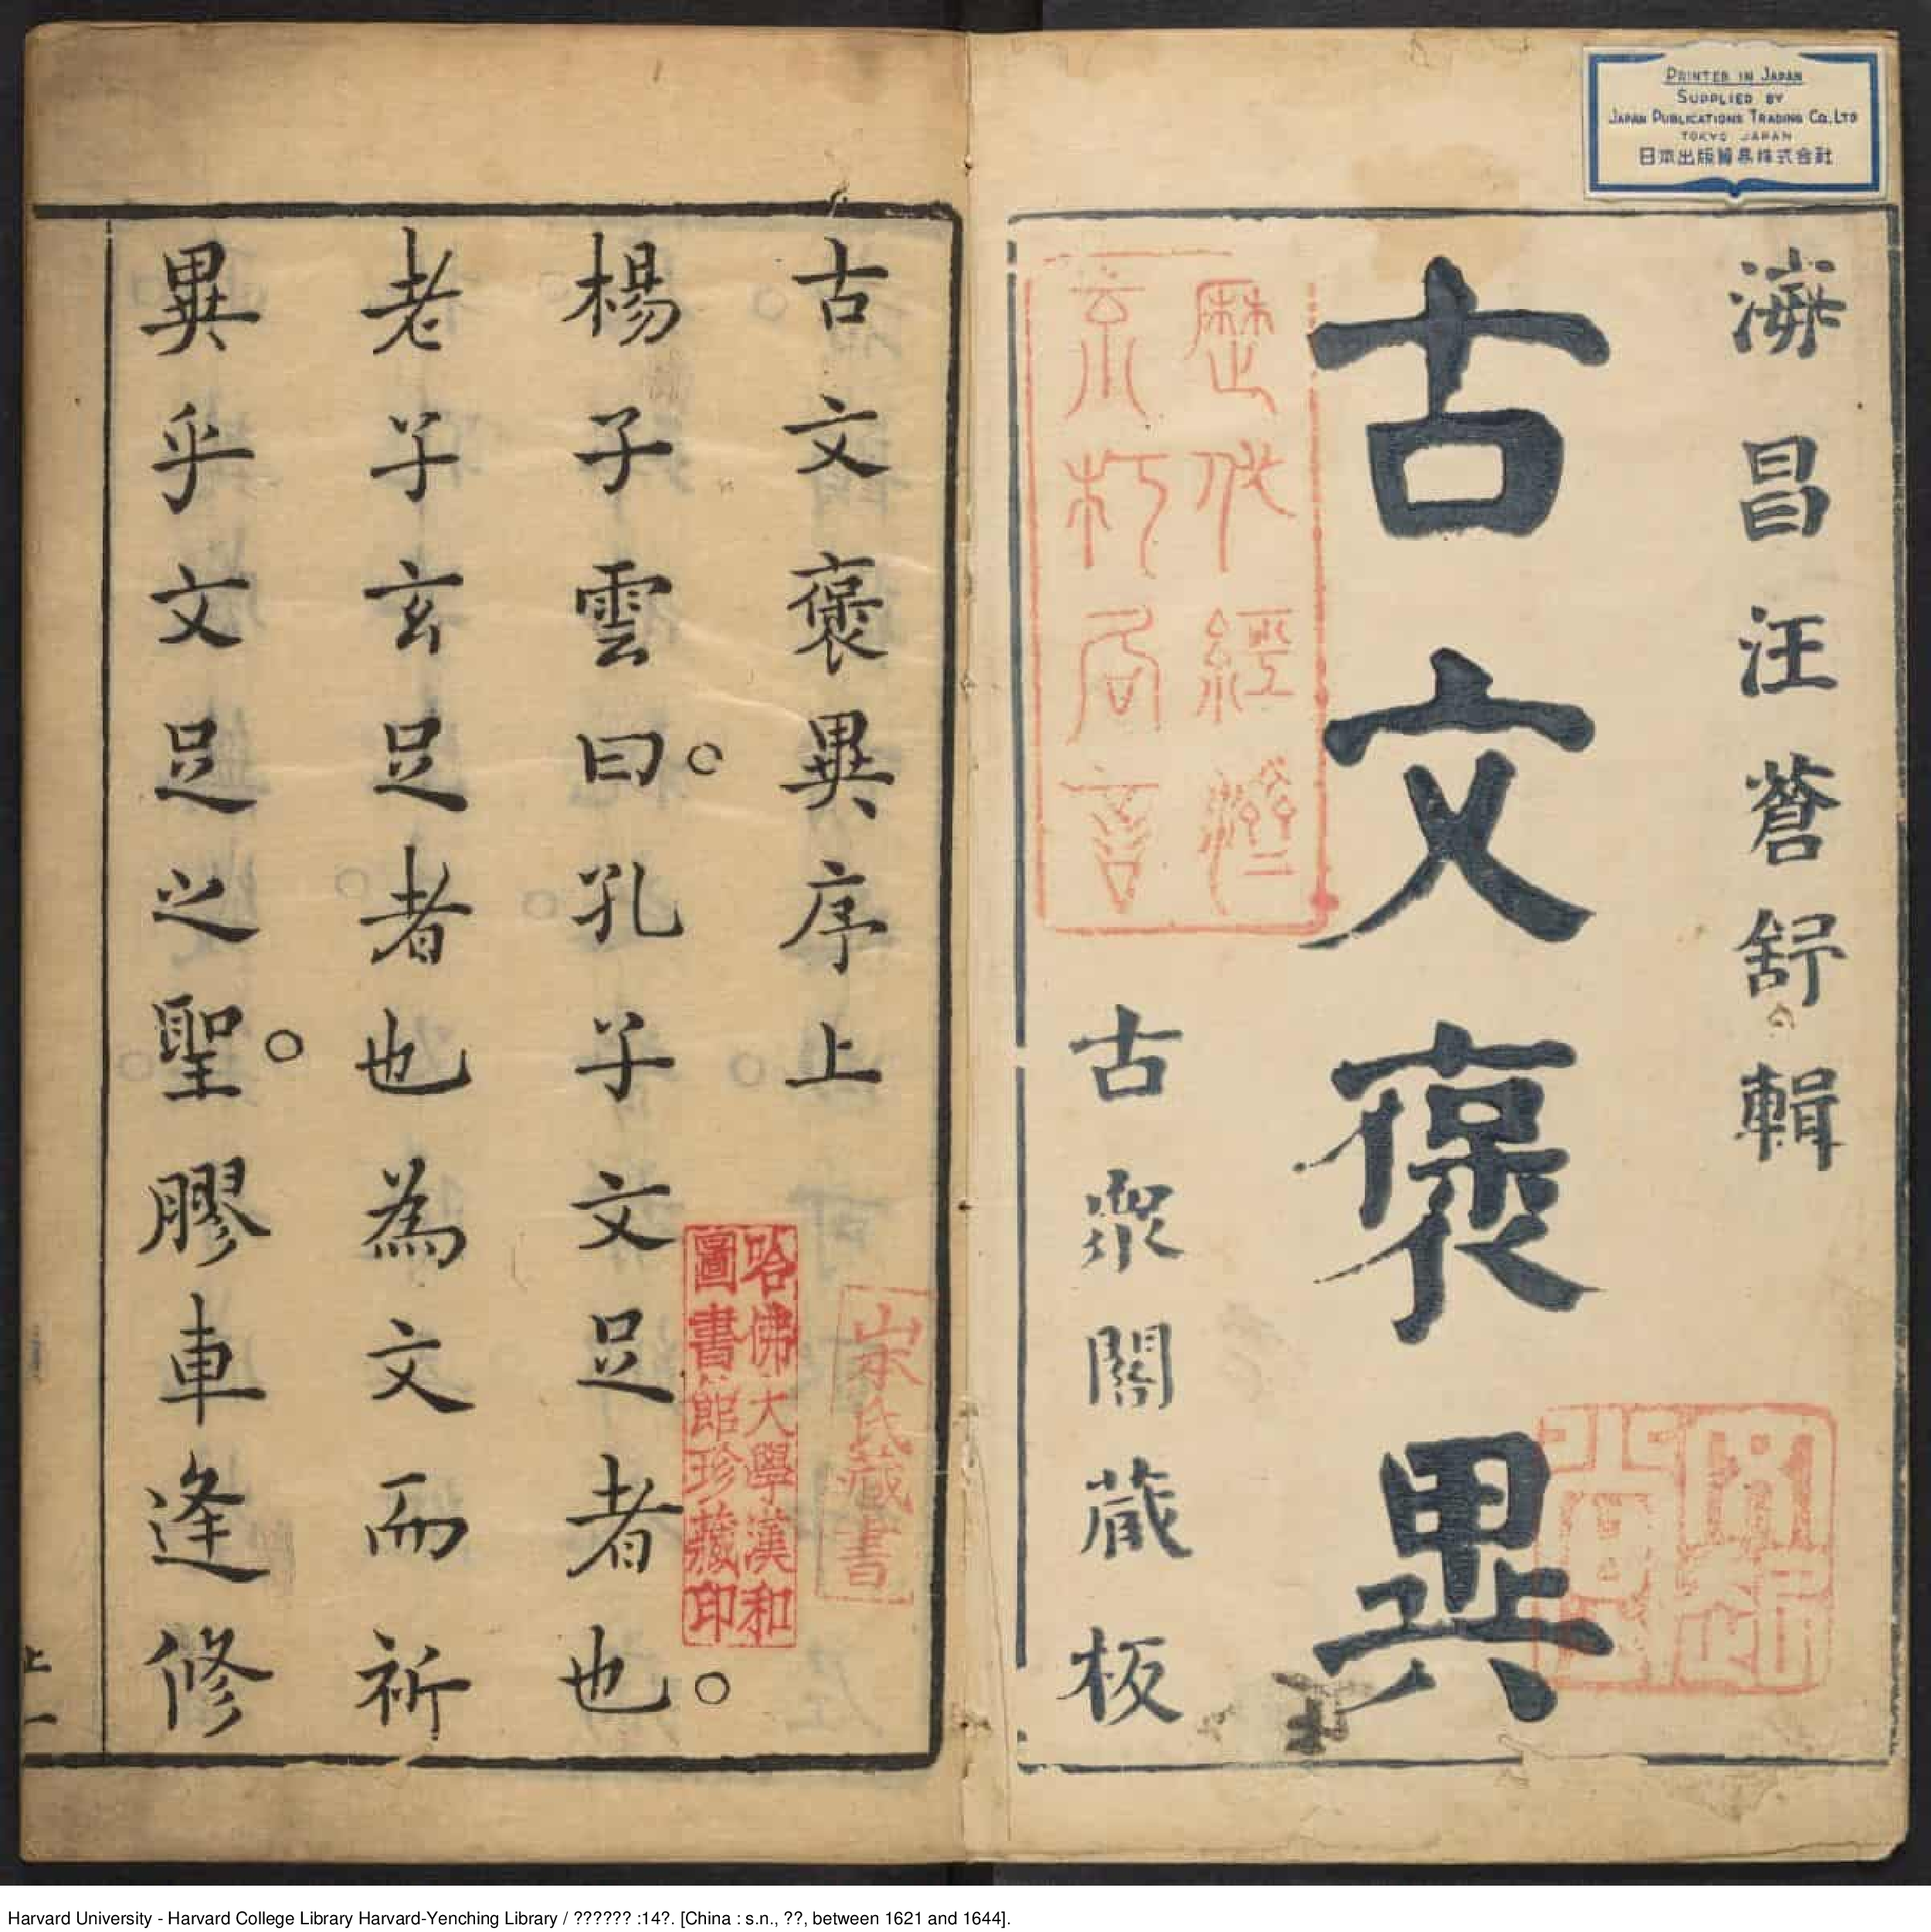 PRINTED IN JAPAN
SUPPLIED BY
JAPAN PUBLICATIONS TRADING CO., LTD
TOKYO JAPAN
日本出版貿易株式会社
海昌汪蒼舒輯
古文褒異
古眾閣蔵板
古文褒異序上
楊子雲曰孔子文足者也
老子玄足者也為文而祈
異乎文足之聖膠車逢修
哈佛大學漢和
圖書館珍藏印
氏藏書
上一
Harvard University - Harvard College Library Harvard-Yenching Library / ?????? :14?. [China : s.n., ??, between 1621 and 1644].